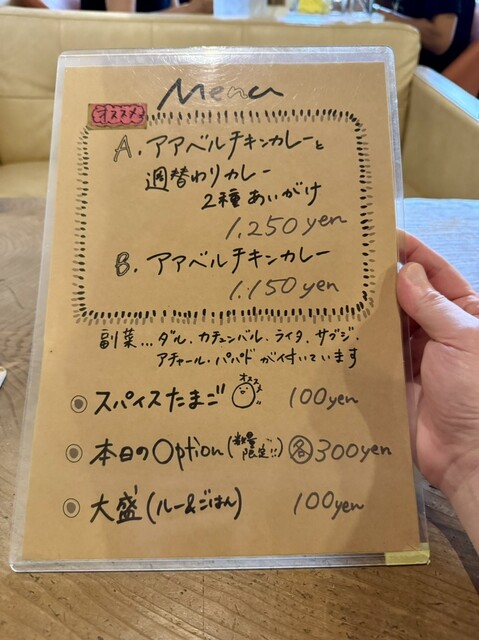 Menu
オススメ
A. アアベルチキンカレーと
週替わりカレー
2種あいがけ
1,250yen
B. アアベルチキンカレー
1,150yen
副菜...ダル、カチュンバル、ライタ、サブジ、
アチャール・パパドが付いています
◉ スパイスたまご オススメ 100yen
◉ 本日のOption(数量限定!!) 各300yen
◉ 大盛(ルー&ごはん) 100yen